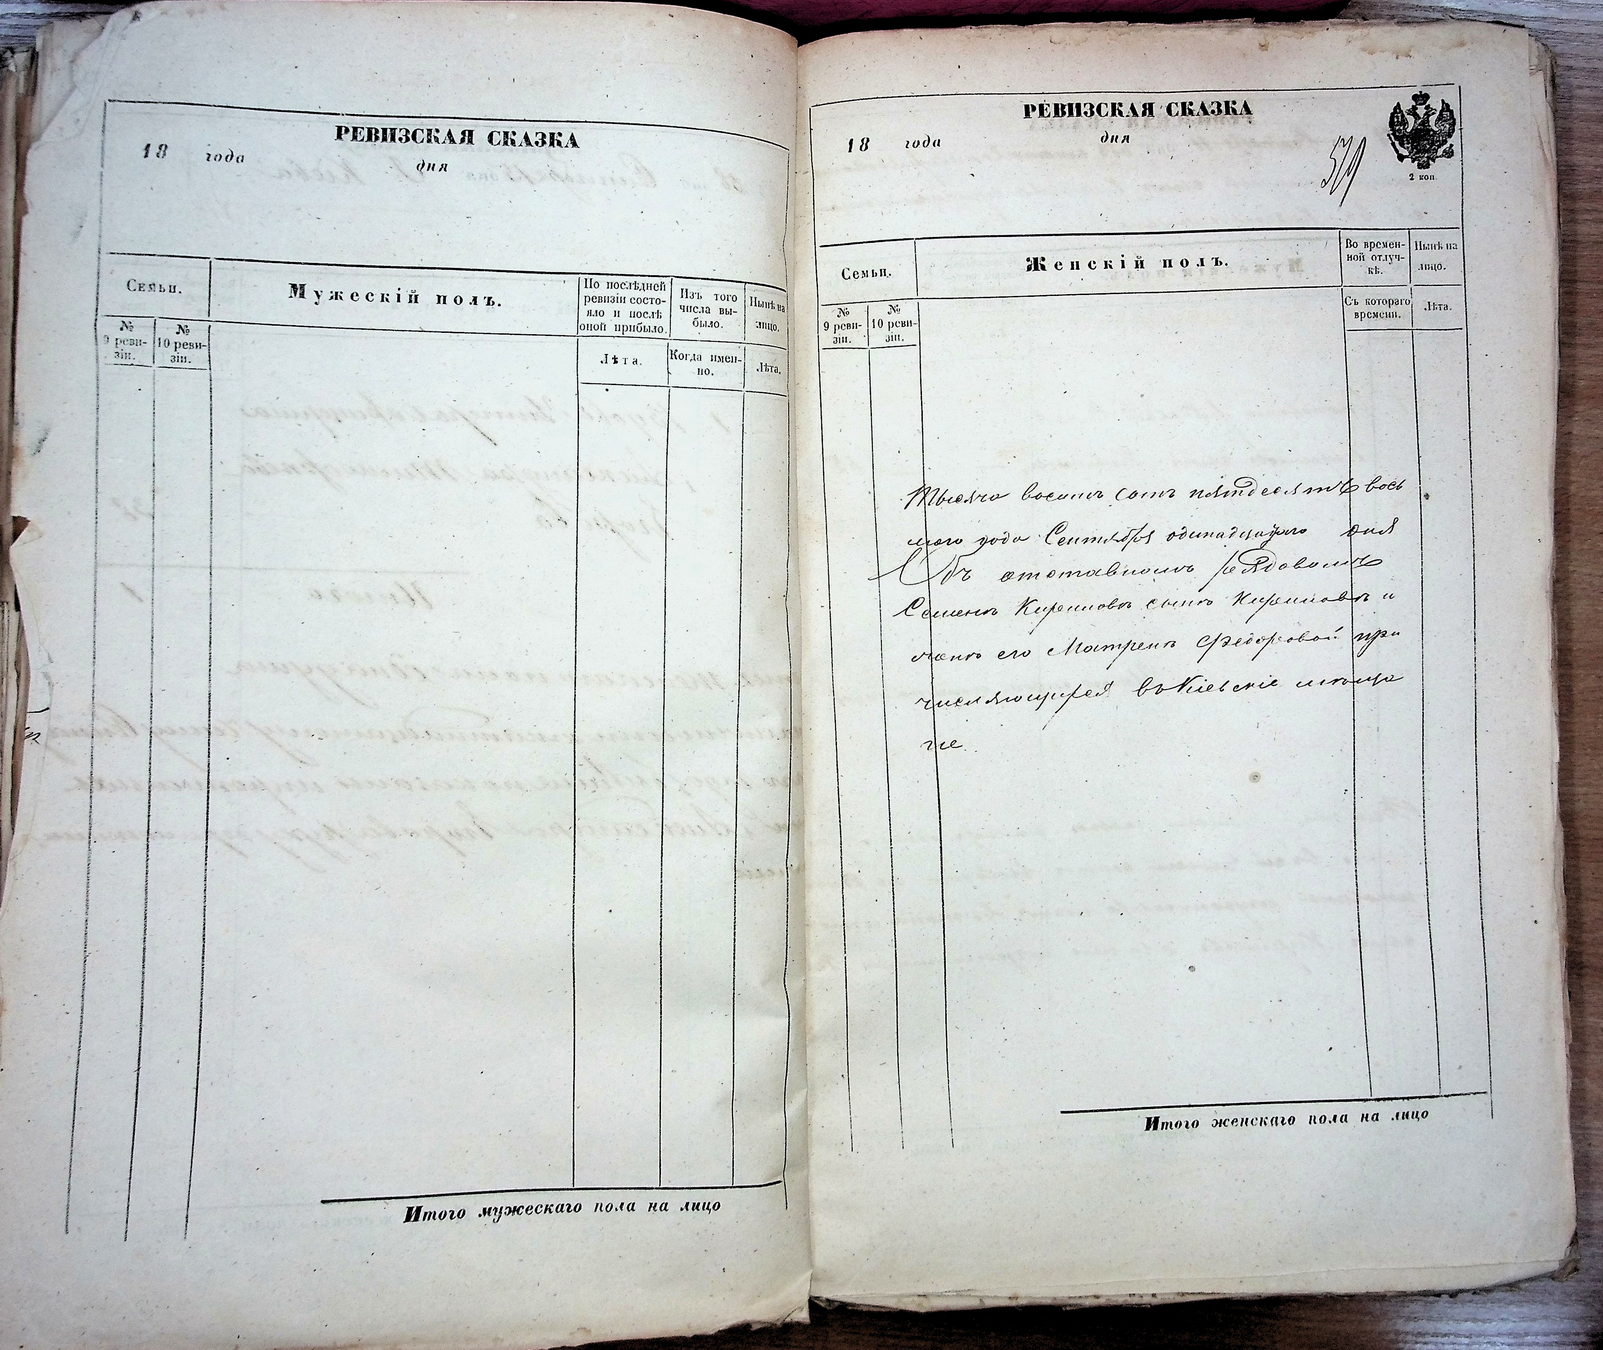 РЕВИЗСКАЯ СКАЗКА
18 года
дня
Семьи.
Мужескій полъ.
По послѣдней ревизіи состояло и послѣ оной прибыло.
Изъ того числа выбыло.
Нынѣ на лицо.
№ 9 ревизіи.
№ 10 ревизіи.
Лѣта.
Когда именно.
Лѣта.
Итого мужескаго пола на лицо
РЕВИЗСКАЯ СКАЗКА
18 года
дня
2 коп.
Семьи.
Женскій полъ.
Во временной отлучкѣ.
Нынѣ на лицо.
№ 9 ревизіи.
№ 10 ревизіи.
Съ котораго времени.
Лѣта.
Тысяча восемь сотъ пятдесятъ вось
мого года Сентября одинадцатого дня
Объ отставномъ рядовомъ
Семенѣ Кириловѣ сынѣ Кириловѣ и
женѣ его Матренѣ Федоровой при
числяющихся въ Кіевскіе мѣща
не
Итого женскаго пола на лицо